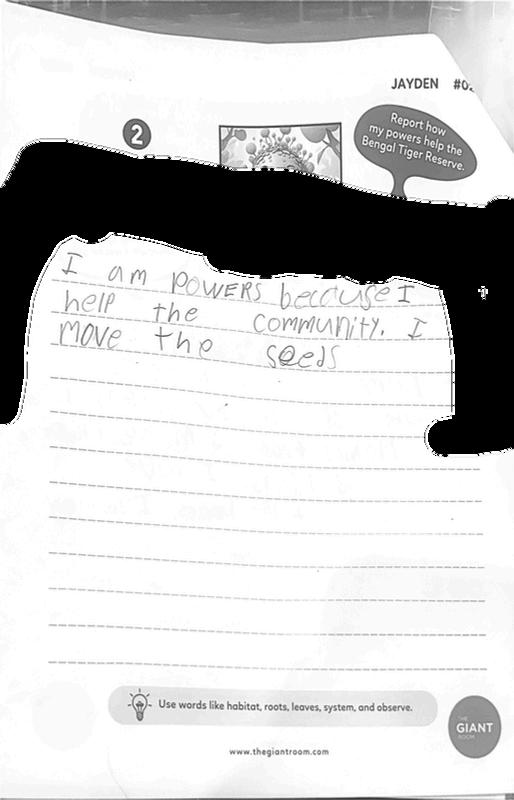 JAYDEN #02
2
Report how
my powers help the
Bengal Tiger Reserve.
I am POWERS because I
help the community. I
move the seeds
Use words like habitat, roots, leaves, system, and observe.
THE
GIANT
ROOM
www.thegiantroom.com